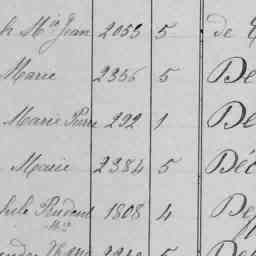 h Mie Jean 2053 5 de
Marie 2356 5 De
Marie Pierre 292 1 De
Marie 2384 5 Déc
Prudent 1808 4 De
Mie
5 De